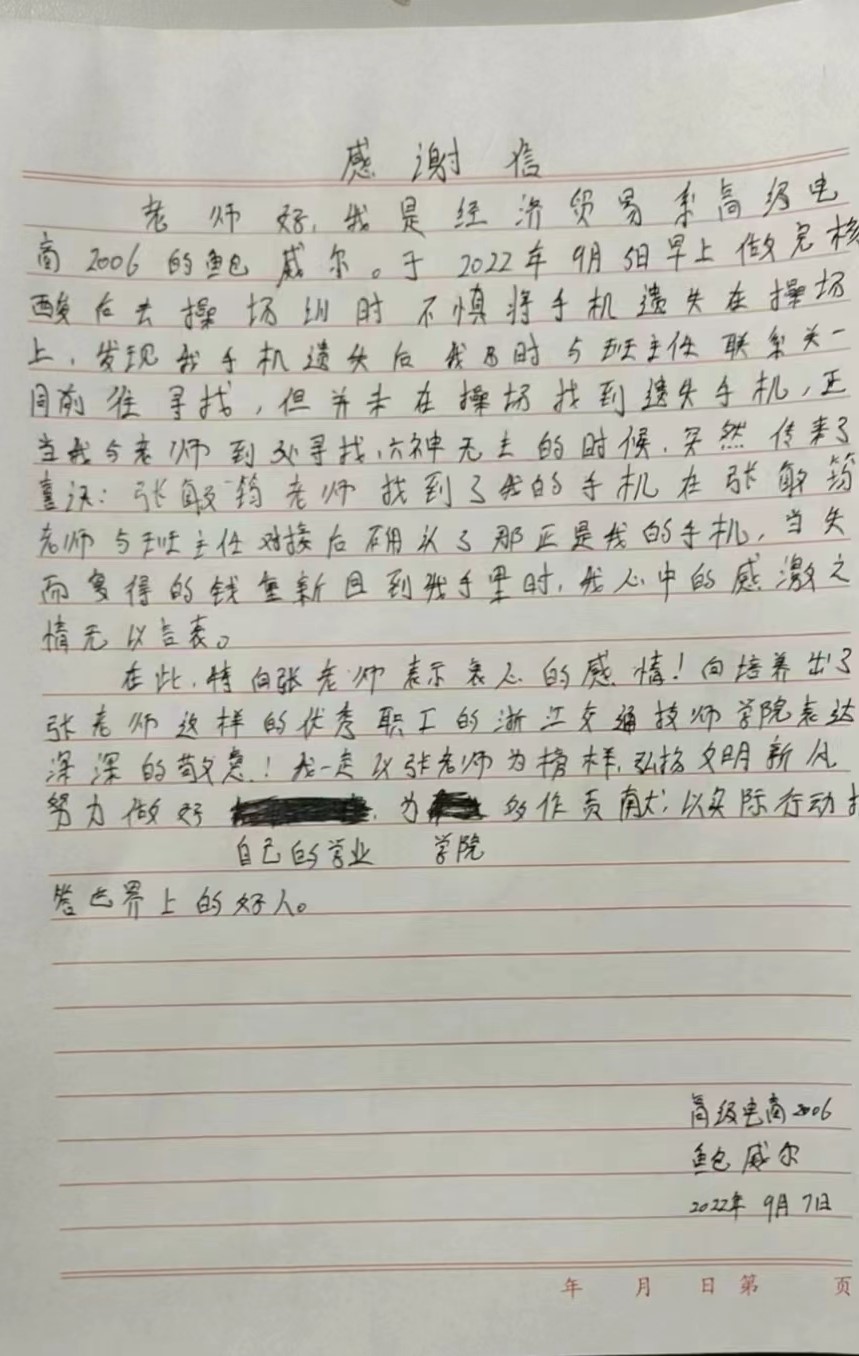 感谢信
老师好，我是经济贸易系高级电
商2006的鲍威尔。于2022年9月5日早上做完核
酸后去操场训时不慎将手机遗失在操场
上，发现我手机遗失后我及时与班主任联系关一
同前往寻找，但并未在操场找到遗失手机，正
当我与老师到处寻找，六神无主的时候，突然传来了
喜讯：张敏筠老师找到了我的手机在张敏筠
老师与班主任对接后确认了那正是我的手机，当失
而复得的钱重新回到我手里时，我心中的感激之
情无以言表。
在此，特向张老师表示衷心的感情！向培养出了
张老师这样的优秀职工的浙江交通技师学院表达
深深的敬意！我一定以张老师为榜样，弘扬文明新风
努力做好 ，为 的作贡献，以实际行动
自己的学业 学院
世界上的好人。
高级电商2006
鲍威尔
2022年9月7日
年 月 日 第 页